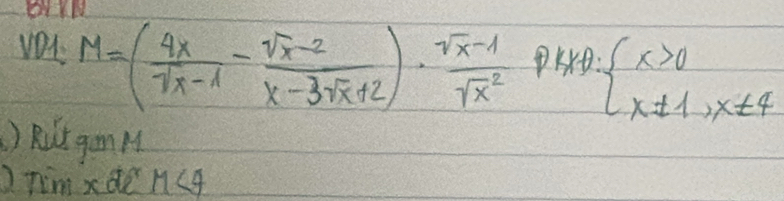 BTVN
VD1: M = (4x/(√x-1) - (√x-2)/(x-3√x+2)) . (√x-1)/√x² ĐKXĐ: { x>0
x≠1, x≠4
) Rút gọn M
) Tìm x để M<4